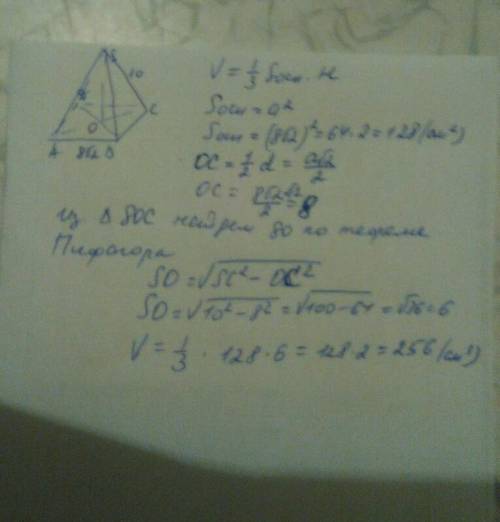 S
10
C
O
A
8√2
B
V = 1/3 Sосн · H
Sосн = a²
Sосн = (8√2)² = 64·2 = 128 (см²)
OC = 1/2 d = a√2/2
OC = 8√2·√2/2 = 8
Из Δ SOC найдем SO по теореме
Пифагора
SO = √SC² − OC²
SO = √10² − 8² = √100 − 64 = √36 = 6
V = 1/3 · 128 · 6 = 128 · 2 = 256 (см³)